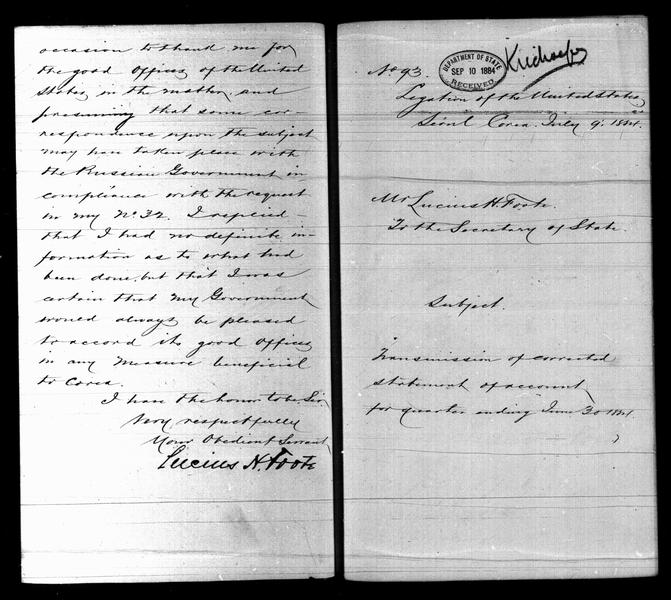 occasion to thank me for
the good Offices of the United
States in the matter, and
presuming that some cor-
respondence upon the subject
may have taken place with
the Russian Government in
compliance with the request
in my No. 32. I replied -
that I had no definite in-
formation as to what had
been done, but that I was
certain that my Government
would always be pleased
to accord its good Offices
in any measure beneficial
to Corea.
I have the honor to be, Sir,
Very respectfully
Your Obedient Servant
Lucius H. Foote
No 93.
DEPARTMENT OF STATE
SEP 10 1884
RECEIVED
Legation of the United States
Séoul Corea. July 9th 1884.
Mr Lucius H. Foote.
To the Secretary of State.
Subject.
Transmission of corrected
statement of account
for quarter ending June 30 1884.